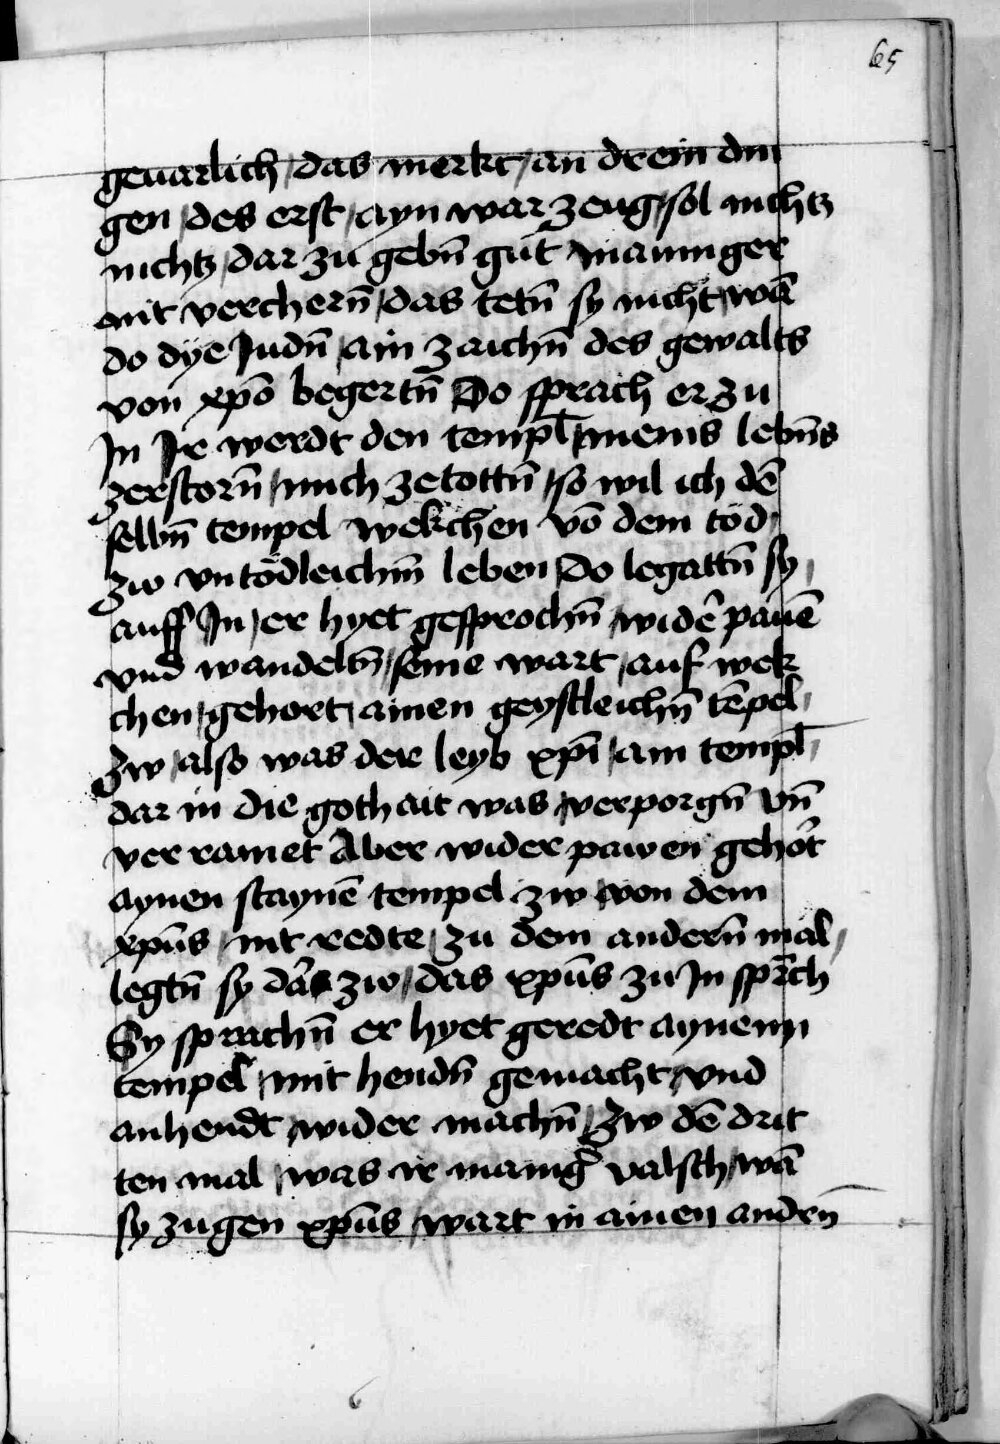 65
geuarlich / das merkt / an drein din
gen / des erst / ayn war zeug / sol nichtz
nichtz / dar zu gebn̄ gut maninger
mit vercherñ / das tetn̄ sy nicht / wā
do dye Judn̄ / ain zaichn̄ des gewalts
von xp̄o begertn̄ Do sprach er zu
In Ir werdt den templ̄ / meins lebn̄s
zerstorn̄ / mich zetottn̄ / so wil ich dē
selbn̄ tempel wekchen vō dem tod /
zw vntödleichm̄ leben / Do legattn̄ sy /
auff In / er hyet gesprochn̄ / wider̄ pauē
vnd wandeltn̄ / seine wart / auf wek
chen / gehort / ainen geystleichn̄ tēpel /
zw / also was der leyb xp̄i / ain templ̄ /
dar in die gothait was / verporgn̄ vn̄
ver ramet Aber wider pawen gehört
aynen staynē tempel zw / von dem
xp̄us / nit redte / zu dem andern̄ mal /
legtn̄ sy dar zw / das xp̄us zu In sprach
Sy sprachn̄ er hyet geredt aynenn
tempel / mit hendn̄ gemacht / vnd
anhendt / wider machn̄ / zw dē drit
ten mal / was ir maniḡ valsch / wā
sy zugen xp̄us / wart in ainen andern̄